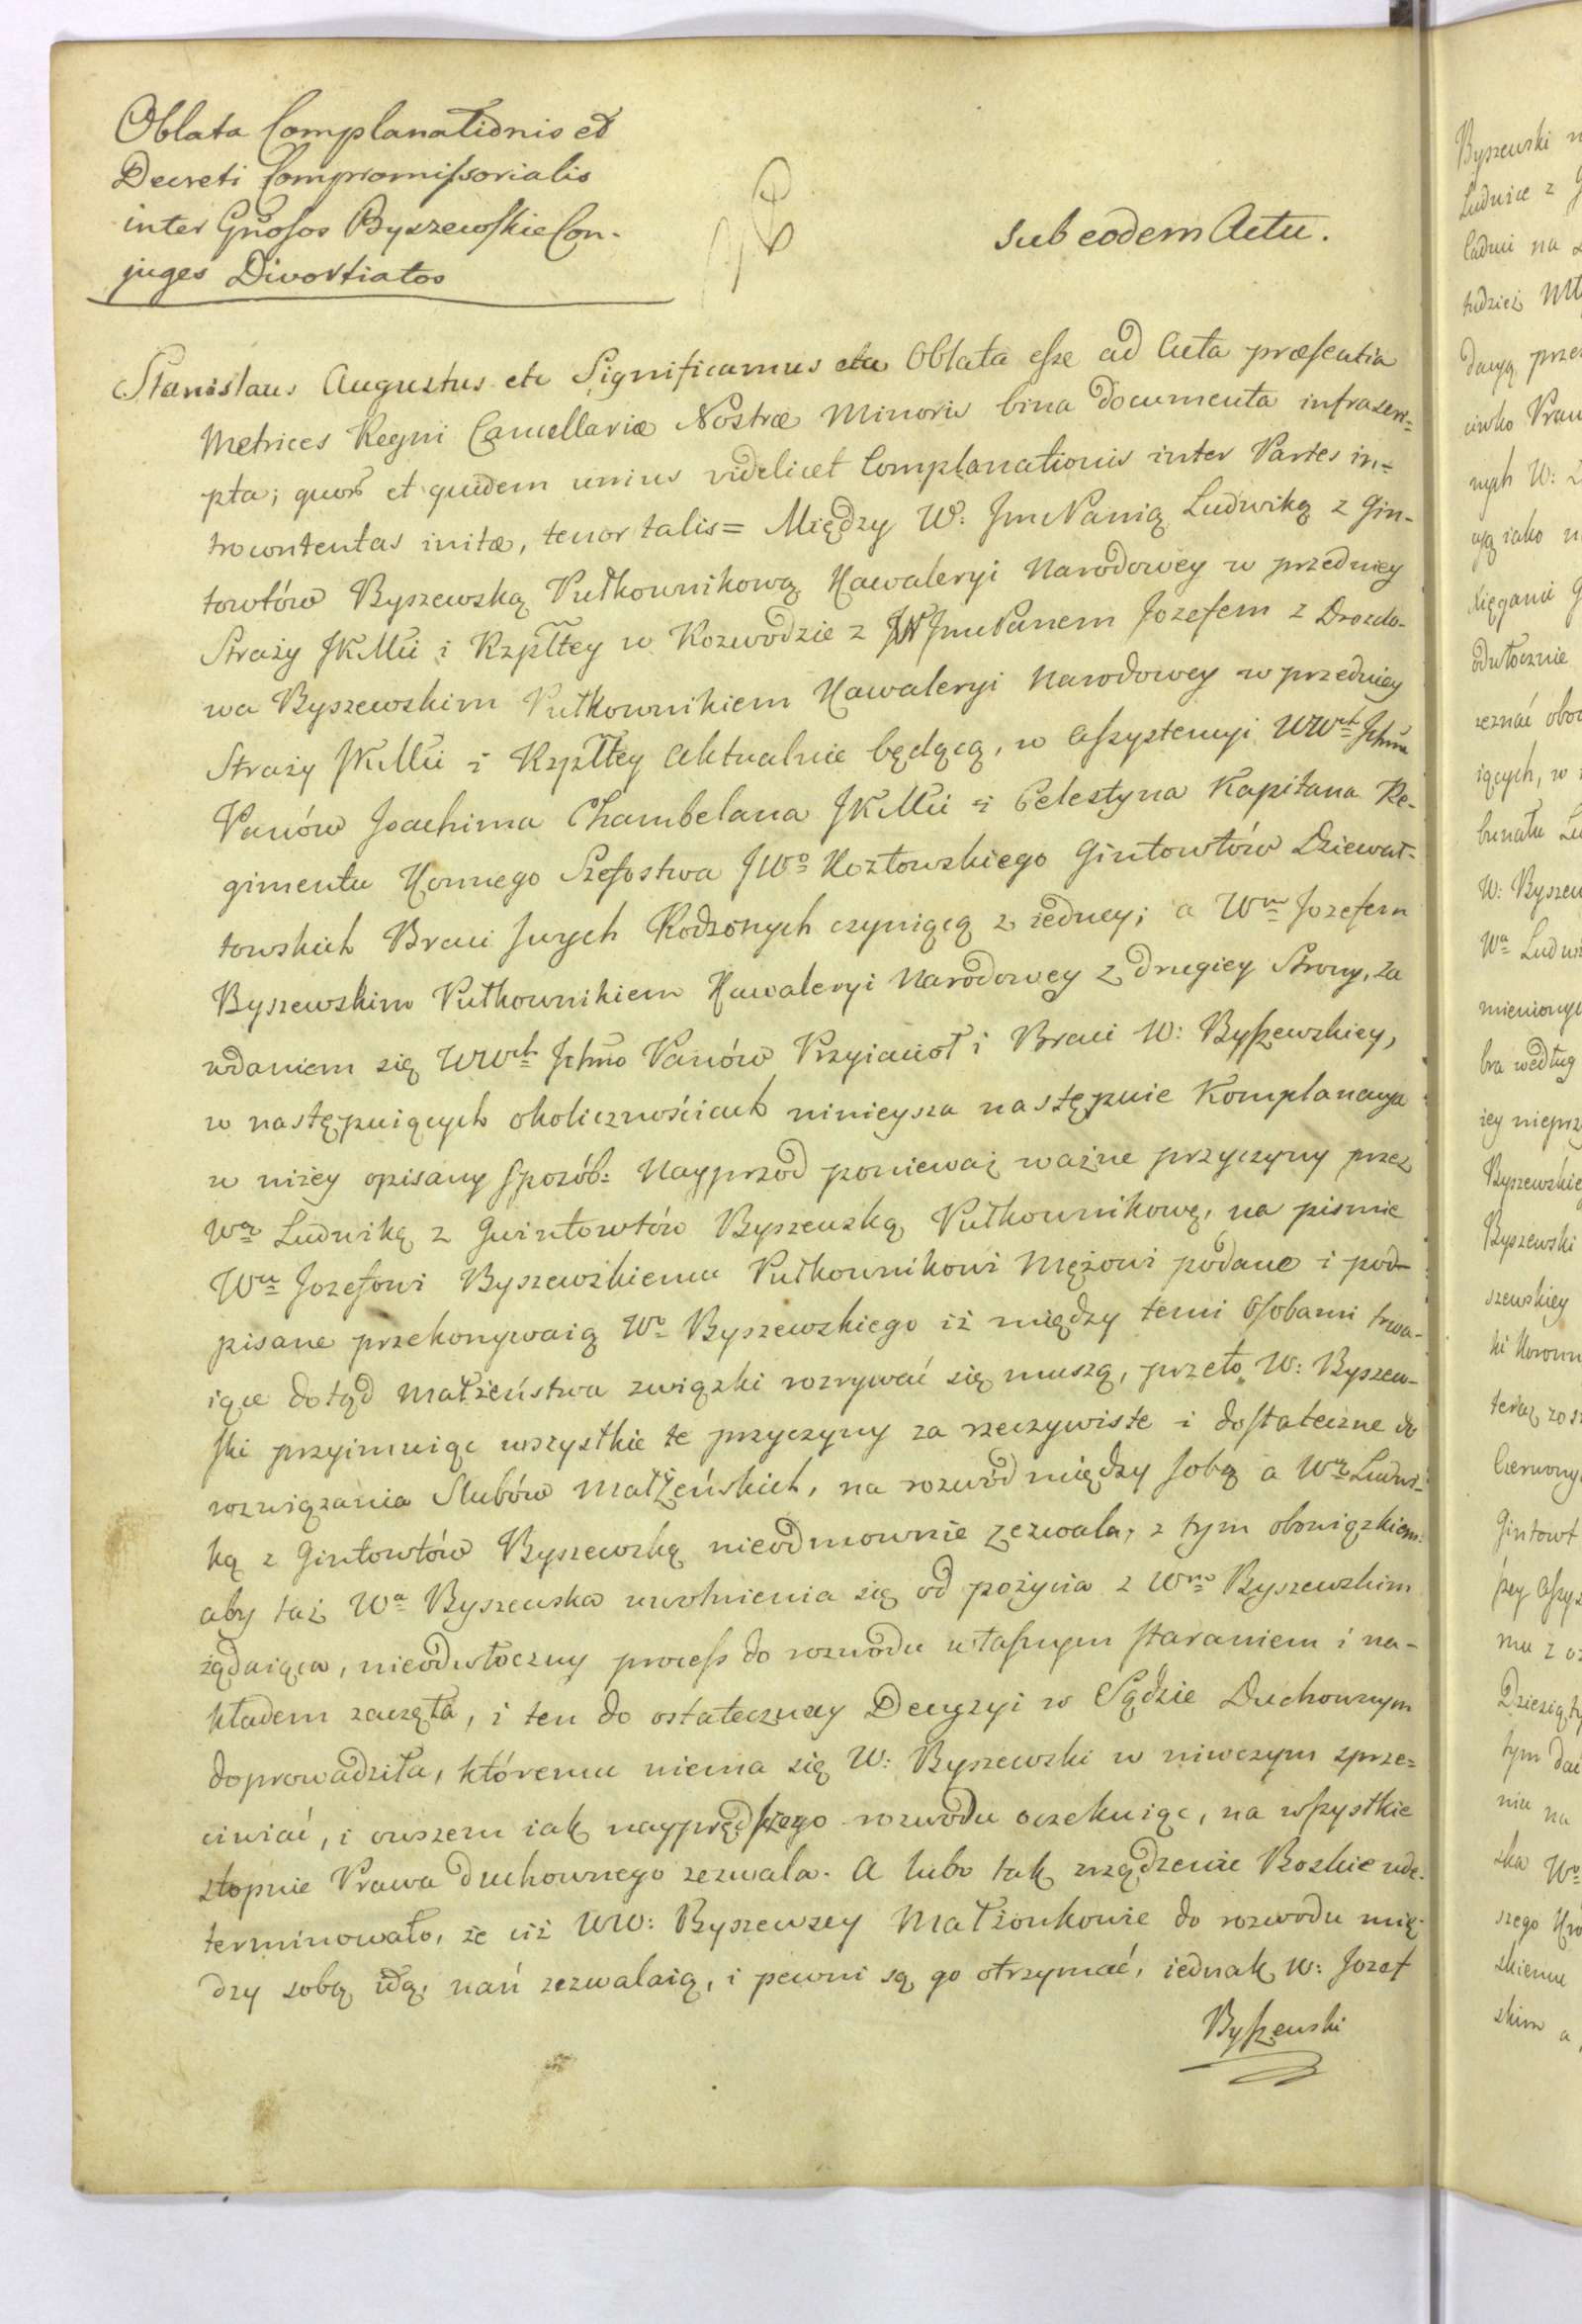 Oblata Complanationis et
Decreti Compromissorialis
inter Gñosos Byszewskie Con-
juges Divortiatos
Sub eodem Actu.
Stanislaus Augustus etc Significamus etc Oblata esse ad Acta præsentia
Metrices Regni Cancellariæ Nostræ Minoris bina documenta infrascri=
pta; quorũ et quidem unius videlicet Complanationis inter Partes in=
trocontentas initæ, tenor talis = Między W: JmcPanią Ludwiką z Gin-
towtów Byszewską Pułkownikową Kawaleryi Narodowey w przedniey
Straży JKMci i Rzpltey w Rozwodzie z JmcPanem Jozefem z Drozdo-
wa Byszewskim Pułkownikiem Kawaleryi Narodowey w przedniey
Straży JKMci i Rzpltey Aktualnie będącą, w Assystencyi WWch Jchmc
Panów Joachima Chambelana JKMci i Celestyna Kapitana Re-
gimentu Konnego Szefostwa JWo Kozłowskiego Gintowtów Dziewał-
towskich Braci Swych Rodzonych czyniącą z iedney; a Wm Jozefem
Byszewskim Pułkownikiem Kawaleryi Narodowey z drugiey Strony, za
wdaniem się WWch Jchmc Panów Przyiacioł i Braci W: Byszewskiey,
w następuiących okolicznościach ninieysza następuie Komplanacya
w niżey opisany sposób: Nayprzod ponieważ ważne przyczyny przez
Wą Ludwikę z Gwintowtów Byszewską Pułkownikowę, na pismie
Wu Jozefowi Byszewskiemu Pułkownikowi Mężowi podane i pod-
pisane przekonywaią Wo Byszewskiego iż między temi Osobami trwa-
iące dotąd Małżeństwa związki rozrywać się muszą, przeto W: Byszew-
ski przyimuiąc wszystkie te przyczyny za rzeczywiste i dostateczne do
rozwiązania Slubów Małżeńskich, na rozwód między sobą a Wą Ludwi-
ką z Gintowtów Byszewską nieodmownie zezwala, z tym obowiązkiem:
aby taż Wa Byszewska uwolnienia się od pożycia z Wm Byszewskim
żądaiąca, nieodwłoczny process do rozwodu własnym staraniem i na-
kładem zaczęła, i ten do ostateczney Decyzyi w Sądzie Duchownym
doprowadziła, któremu niema się W: Byszewski w niwczym sprze=
ciwiać, i owszem iak nayprędszego rozwodu oczekuiąc, na wszystkie
stopnie Prawa duchownego zezwala. A lubo tak zrządzenie Boskie zde-
terminowało, że ciż WW: Byszewscy Małżonkowie do rozwodu mię-
dzy sobą idą, nań zezwalaią, i pewni są go otrzymać, iednak W: Jozef
Byszewski